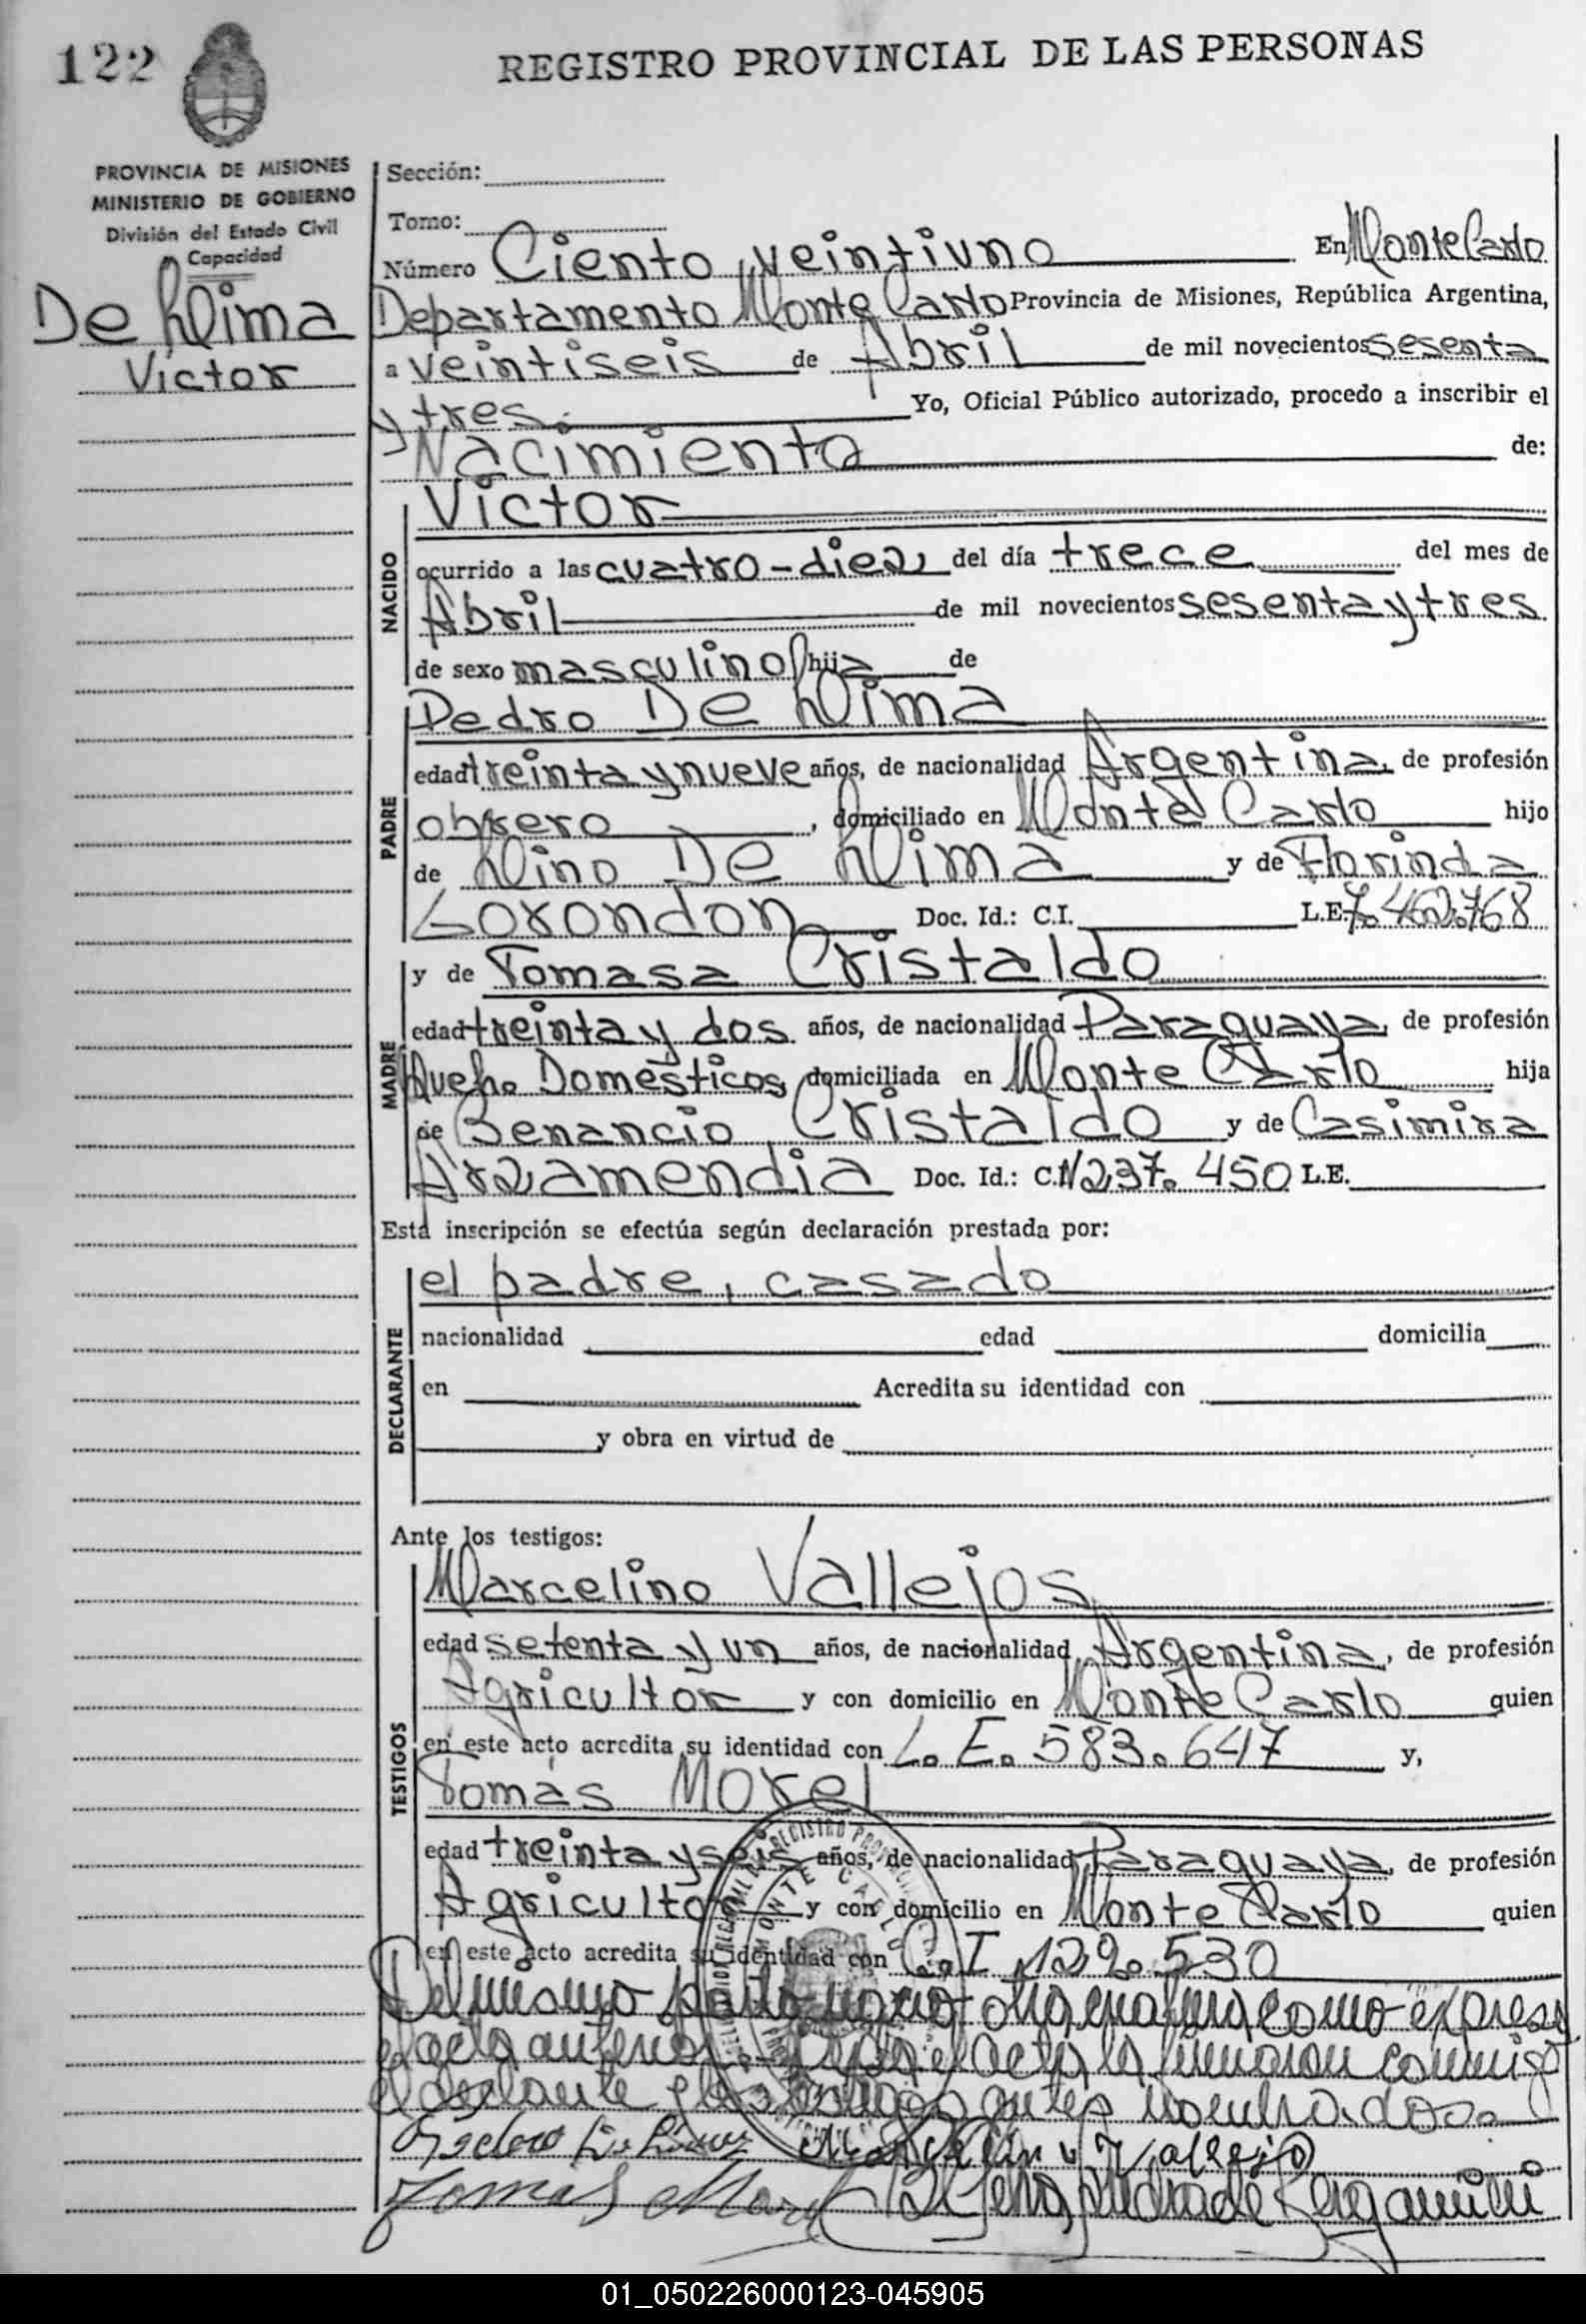 122
REGISTRO PROVINCIAL DE LAS PERSONAS
PROVINCIA DE MISIONES
MINISTERIO DE GOBIERNO
División del Estado Civil
Capacidad
De Lima
Victor
Sección:
Tomo:
Número Ciento veintiuno En Monte Carlo
Departamento Monte Carlo Provincia de Misiones, República Argentina,
a veintiseis de Abril de mil novecientos sesenta
y tres. Yo, Oficial Público autorizado, procedo a inscribir el
Nacimiento de:
NACIDO
Victor
ocurrido a las cuatro-diez del día trece del mes de
Abril de mil novecientos sesenta y tres
de sexo masculino hijo de
PADRE
Pedro De Lima
edad treinta y nueve años, de nacionalidad Argentina, de profesión
obrero, domiciliado en Monte Carlo hijo
de Lino De Lima y de Florinda
Gorondon Doc. Id.: C.I. L.E. 7.462.768
MADRE
y de Tomasa Cristaldo
edad treinta y dos años, de nacionalidad Paraguaya, de profesión
Queh. Domésticos, domiciliada en Monte Carlo hija
de Benancio Cristaldo y de Casimira
Arzamendia Doc. Id.: C.I. 237.450 L.E.
Esta inscripción se efectúa según declaración prestada por:
DECLARANTE
el padre, casado
nacionalidad edad domicilia
en Acredita su identidad con
y obra en virtud de
Ante los testigos:
TESTIGOS
Marcelino Vallejos
edad setenta y un años, de nacionalidad Argentina, de profesión
Agricultor y con domicilio en Monte Carlo quien
en este acto acredita su identidad con L.E. 583.647 y,
Tomás Morel
edad treinta y seis años, de nacionalidad Paraguaya, de profesión
Agricultor y con domicilio en Monte Carlo quien
en este acto acredita su identidad con C.I 129.530
Del mismo parto nació otra como expresa
el acta anterior. el acta la firmaron conmigo
el declarante y los testigos antes nombrados.
Pedro De Lima Marcelino Vallejo
Tomas Morel Andrade
MONTE CARLO
01_050226000123-045905